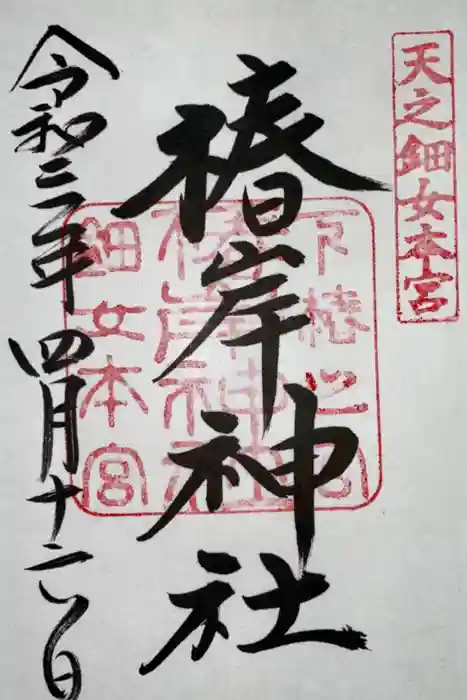 天之鈿女本宮
椿岸神社
下椿之宮
椿岸神社
鈿女本宮
令和三年四月十六日